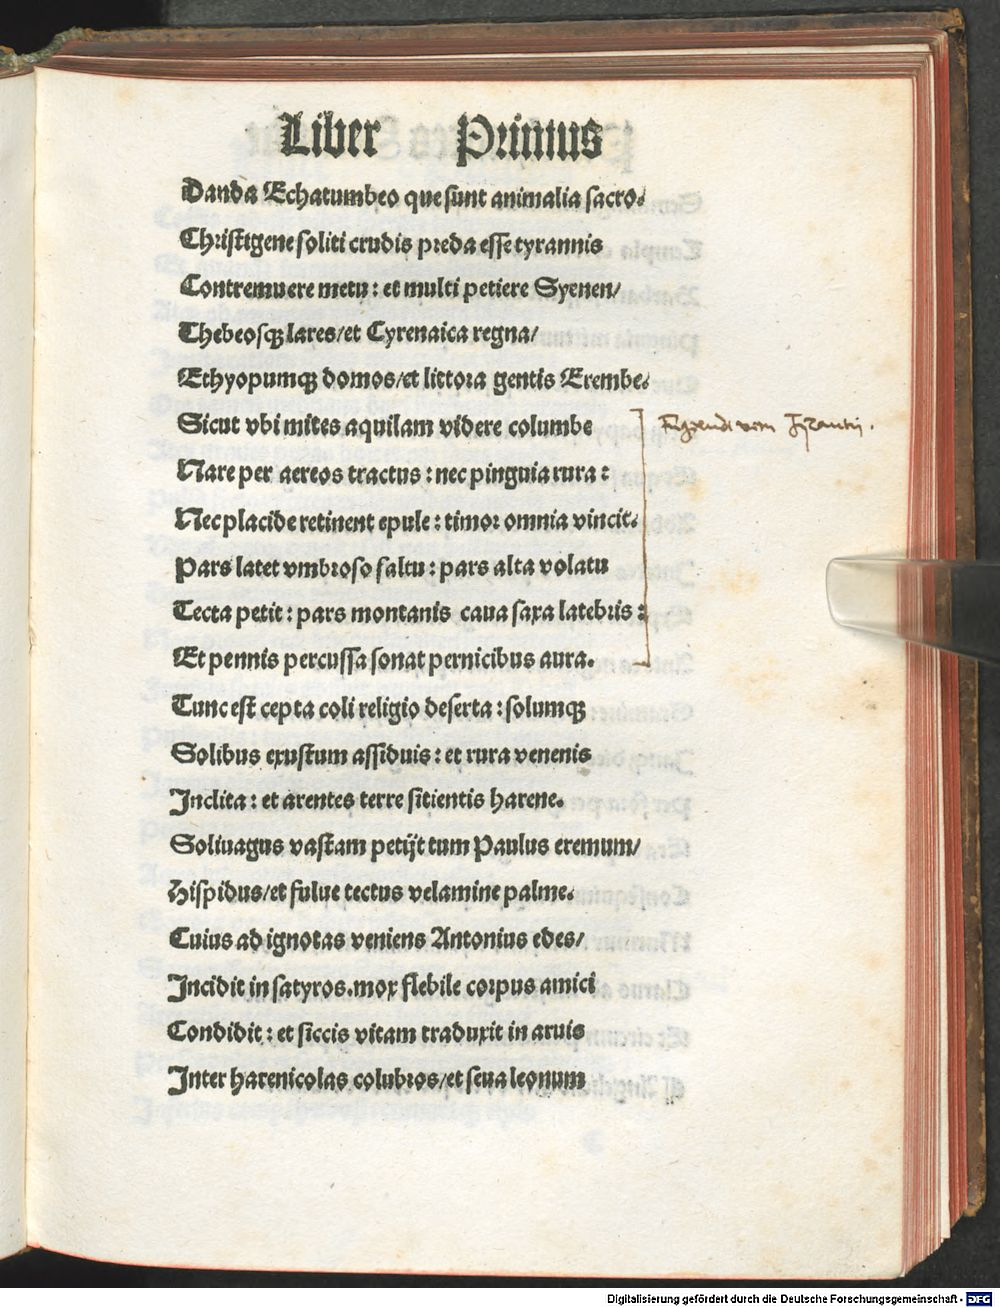 Liber Primus
Danda Echatumbeo que sunt animalia sacro.
Christigene soliti crudis preda esse tyrannis
Contremuere metu: et multi petiere Syenen/
Thebeosqꝫ lares/et Cyrenaica regna/
Ethyopumqꝫ domos/et littora gentis Erembe.
Sicut vbi mites aquilam videre columbe
Nare per aereos tractus: nec pinguia rura:
Nec placide retinent epule: timor omnia vincit.
Pars latet vmbroso saltu: pars alta volatu
Tecta petit: pars montanis caua saxa latebris:
Et pennis percussa sonat pernicibus aura.
Tunc est cepta coli religio deserta: solumqꝫ
Solibus exustum assiduis: et rura venenis
Inclita: et arentes terre sitientis harene.
Soliuagus vastam petijt tum Paulus eremum/
Hispidus/et fulue tectus velamine palme.
Cuius ad ignotas veniens Antonius edes/
Incidit in satyros.mox flebile corpus amici
Condidit: et siccis vitam traduxit in aruis
Inter harenicolas colubros/et seua leonum
Digitalisierung gefördert durch die Deutsche Forschungsgemeinschaft - DFG